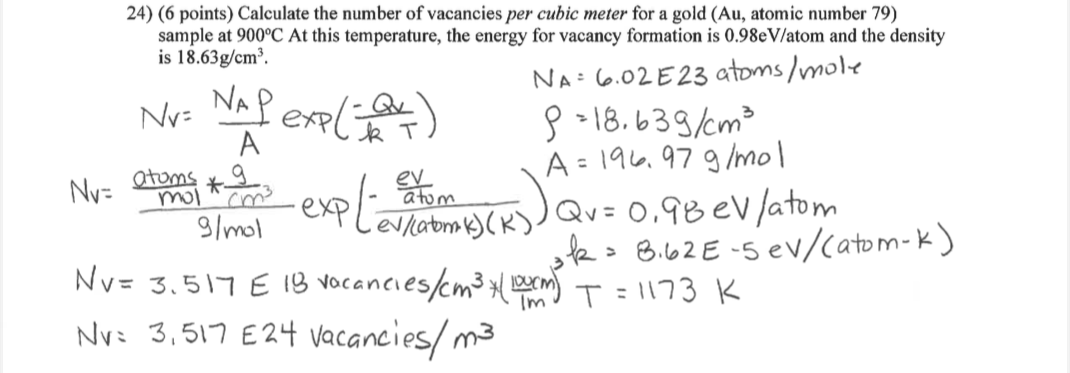 24) (6 points) Calculate the number of vacancies per cubic meter for a gold (Au, atomic number 79)
sample at 900°C At this temperature, the energy for vacancy formation is 0.98eV/atom and the density
is 18.63g/cm³.
NA = 6.02E23 atoms/mole
Nv = NA ρ / A exp(-Qv / k T)
ρ = 18.63g/cm³
A = 196.97 g/mol
Nv = atoms/mol * g/cm³ / g/mol - exp(- ev/atom / ev/(atomk)(K))
Qv = 0.98 eV/atom
k = 8.62E-5 eV/(atom-k)
Nv = 3.517 E 18 vacancies/cm³ * (100cm/1m)³
T = 1173 K
Nv = 3.517 E24 vacancies/m³